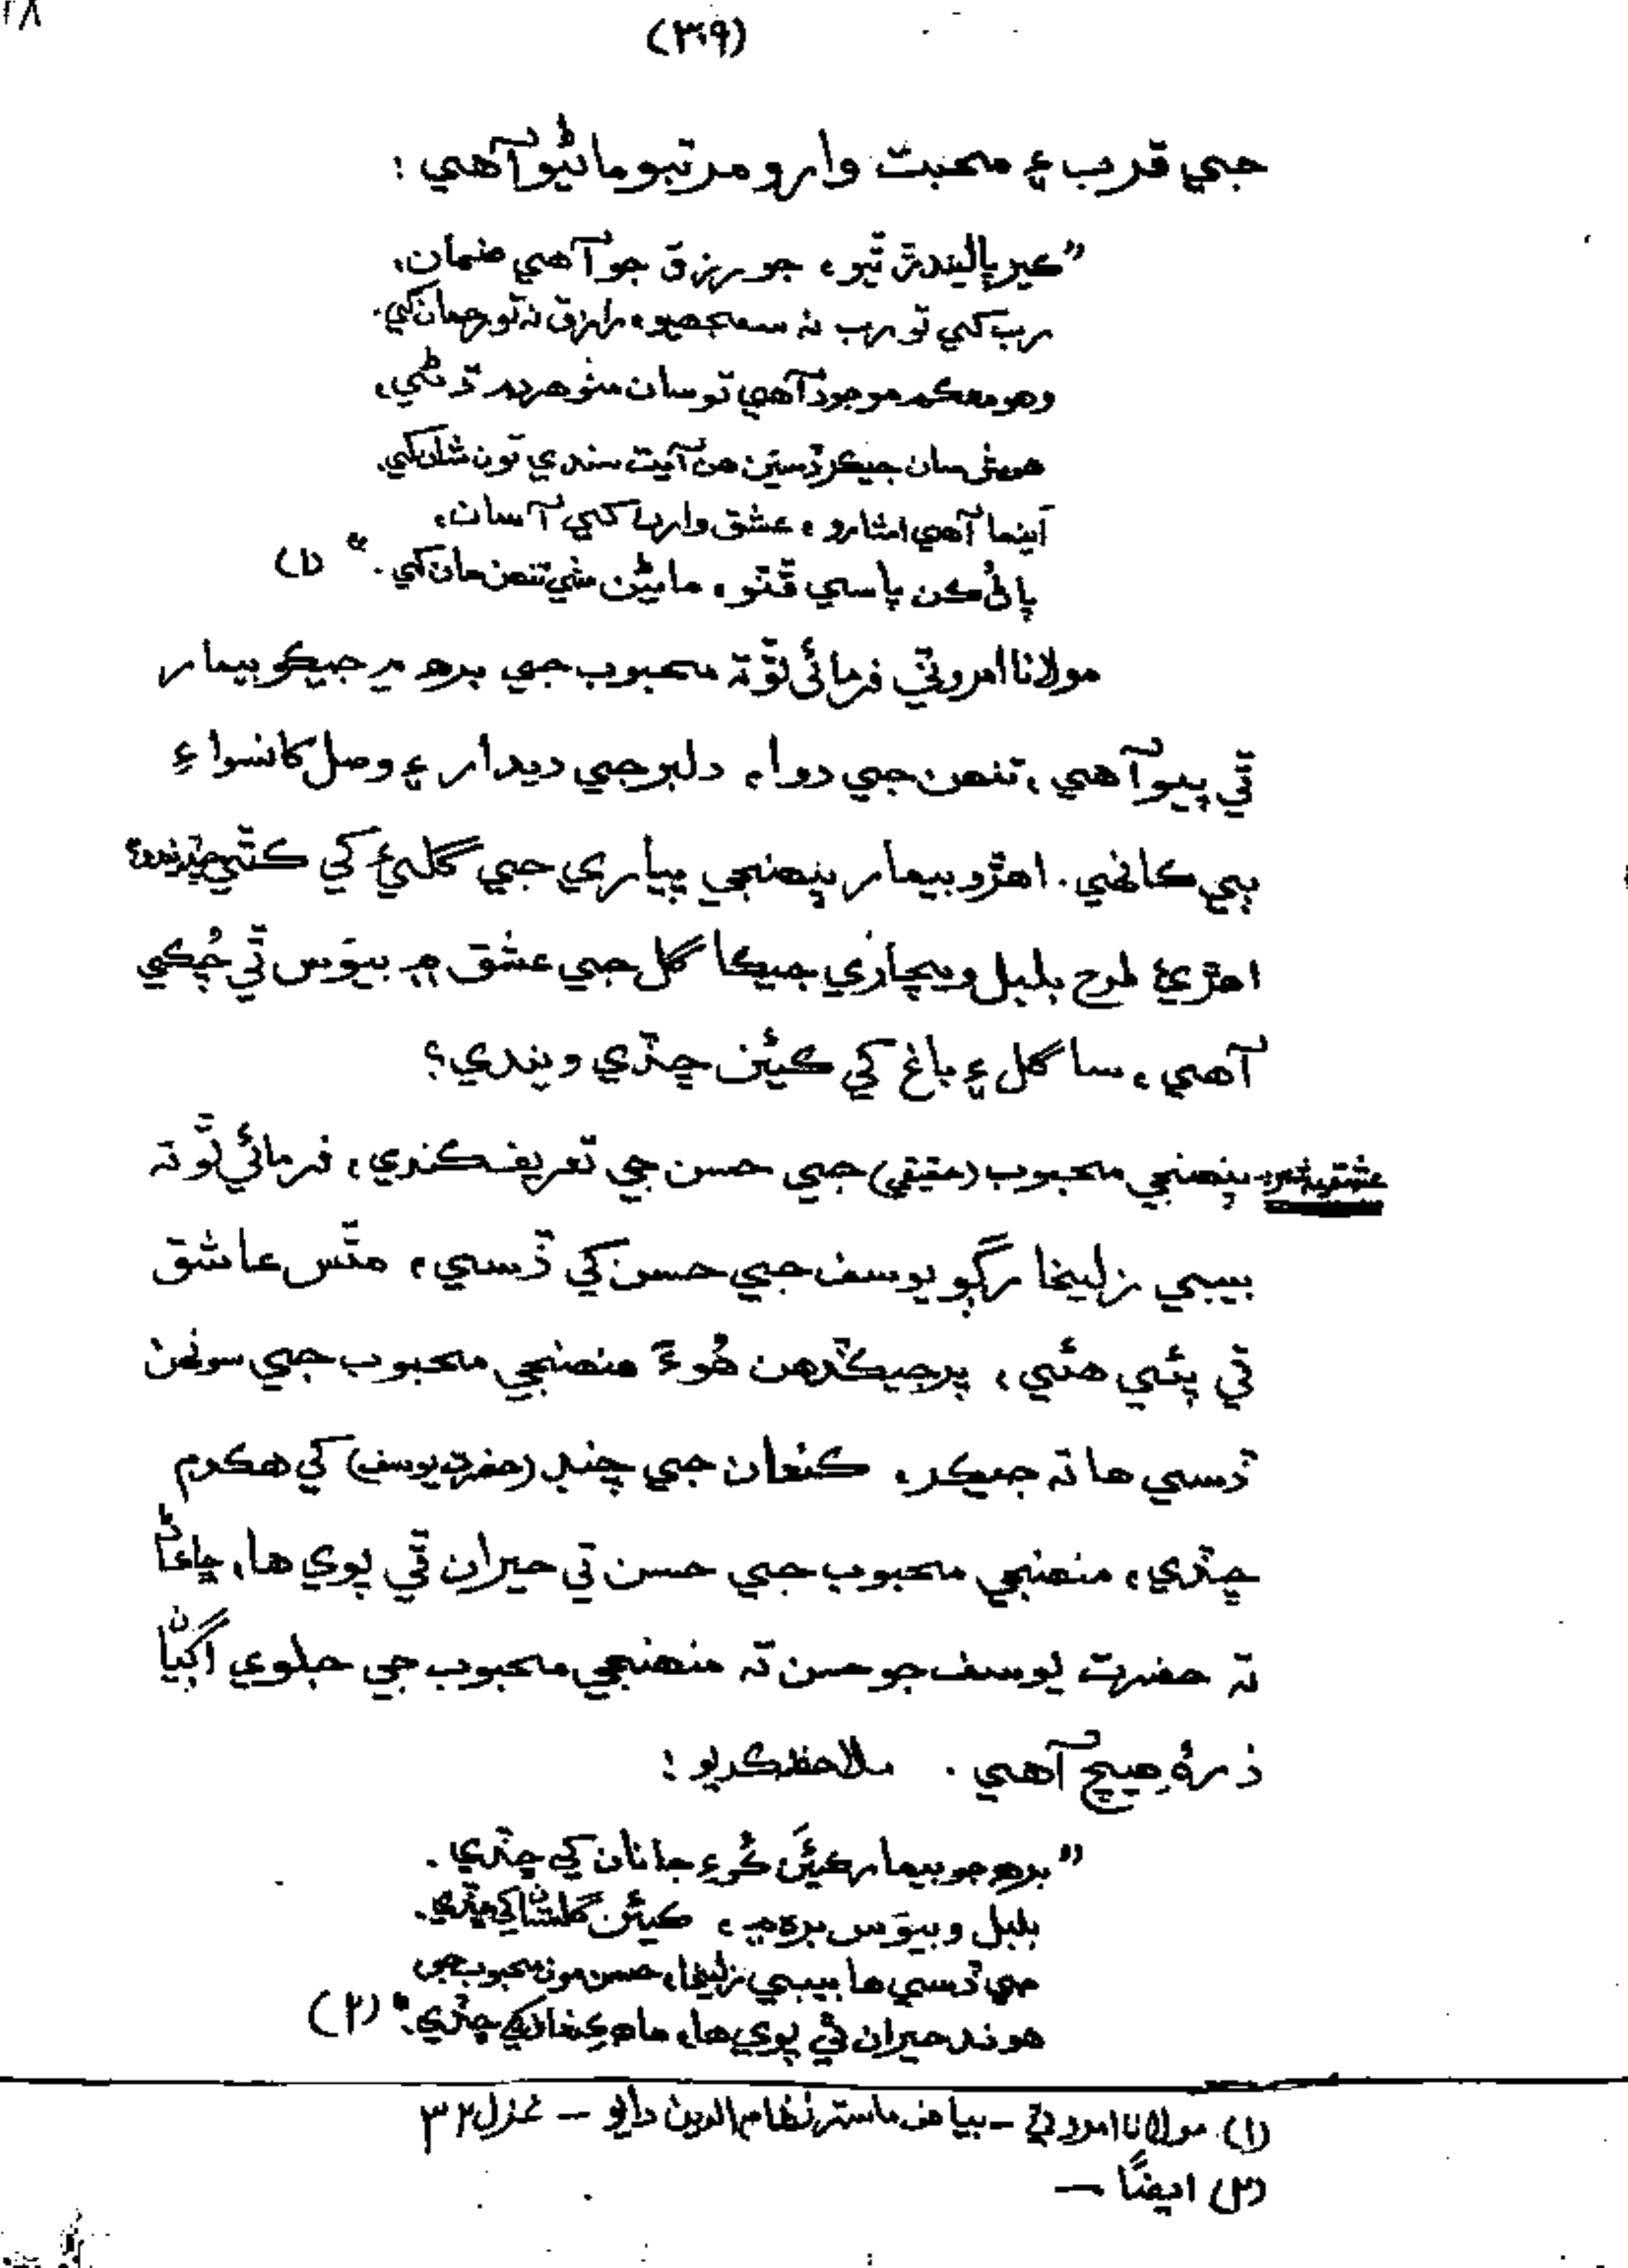 (٣٠٩)
جي قرب ۽ محبت وارو مرتبو ماڻيو آهي :
”ڪير پاليندڙ ٿيو، جو رزق جو آهي ضمان،
رب کي تو رب نه سمجهيو، رازق نه تو ڄمان کي.
وهو معڪم موجود آهي تو سان منو هردم ڌڻي،
هوش سان جيڪر ڏسين هن آيت سندي تون شان کي.
اَينما آهي اشارو، عشق وارن کي آسان،
پاڻ کن پاسي ڦٽو، ماڻين تنهن مان کي.“ (١)
مولانا امروٽي فرمائي ٿو ته محبوب جي برهه ۾ جيڪو بيمار
ٿي پيو آهي، تنهن جي دوا، دلبر جي ديدار ۽ وصل کانسواءِ
ٻي ڪانهي. اهڙو بيمار پنهنجي پياري جي گليءَ کي ڪٿي ڇڏيندو؟
اهڙيءَ طرح بلبل ويچاري جيڪا گل جي عشق ۾ بيوَس ٿي چُڪي
آهي، سا گل ۽ باغ کي ڪيئن ڇڏي ويندي؟
پنهنجي محبوب (حقيقي) جي حسن جي تعريف ڪندي، فرمائي ٿو ته
بيبي زليخا رڳو يوسف جي حسن کي ڏسي، مٿس عاشق
ٿي پئي هئي، پر جيڪڏهن هُوءَ منهنجي محبوب جي سونهن
ڏسي ها ته جيڪر، ڪنعان جي چنڊ (حضرت يوسف) کي هڪدم
ڇڏي، منهنجي محبوب جي حسن تي حيران ٿي پوي ها، ڇاڪاڻ
ته حضرت يوسف جو حسن ته منهنجي محبوب جي جلوي اڳيان
ذرهٔ هيچ آهي . ملاحظ ڪريو :
”برهه جو بيمار ڪيئَن ڪُوءِ جانان کي ڇڏي .
بلبل و بيوَس برهه ۾، ڪيئن گلشن کي ڇڏي.
جي ڏسي ها بيبي زليخا، حسن مون محبوب جو
هوند حيران ٿي پوي ها، ماهِ ڪنعان کي ڇڏي.“ (٢)
(١) مولانا امروٽي – بياض ماستر نظام الدين دايو – غزل ٣٢
(٢) ايضاً –